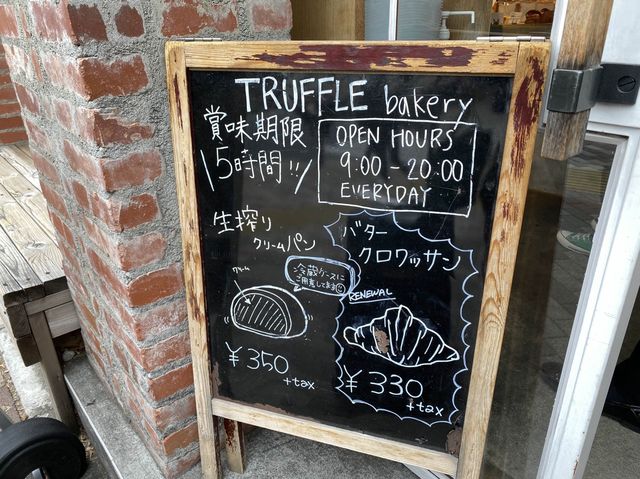 TRUFFLE bakery
賞味期限
5時間!!
OPEN HOURS
9:00-20:00
EVERYDAY
生搾り
クリームパン
冷蔵ケースに
ご用意してます
クリーム
¥350
+tax
バター
クロワッサン
RENEWAL
¥330
+tax